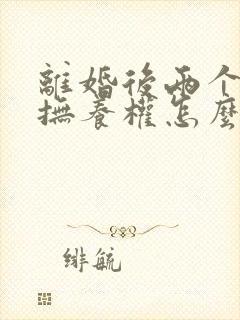 離婚後兩个
撫養權怎麼
緋毓